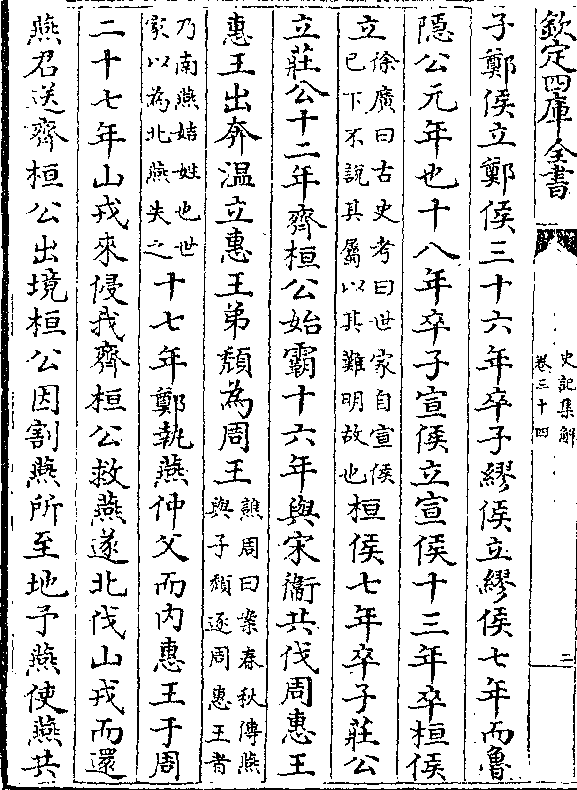 欽定四庫全書
史記集解
卷三十四
二
子鄭侯立鄭侯三十六年卒子繆侯立繆侯七年而魯
隱公元年也十八年卒子宣侯立宣侯十三年卒桓侯
立徐廣曰古史考曰世家自宣侯已下不說其屬以其難明故也桓侯七年卒子莊公
立莊公十二年齊桓公始霸十六年與宋衞共伐周惠王
惠王出奔溫立惠王弟頽為周王譙周曰案春秋傳燕與子頽逐周惠王者
乃南燕姞姓也世家以為北燕失之十七年鄭執燕仲父而内惠王于周
二十七年山戎來侵我齊桓公救燕遂北伐山戎而還
燕君送齊桓公出境桓公因割燕所至地予燕使燕共